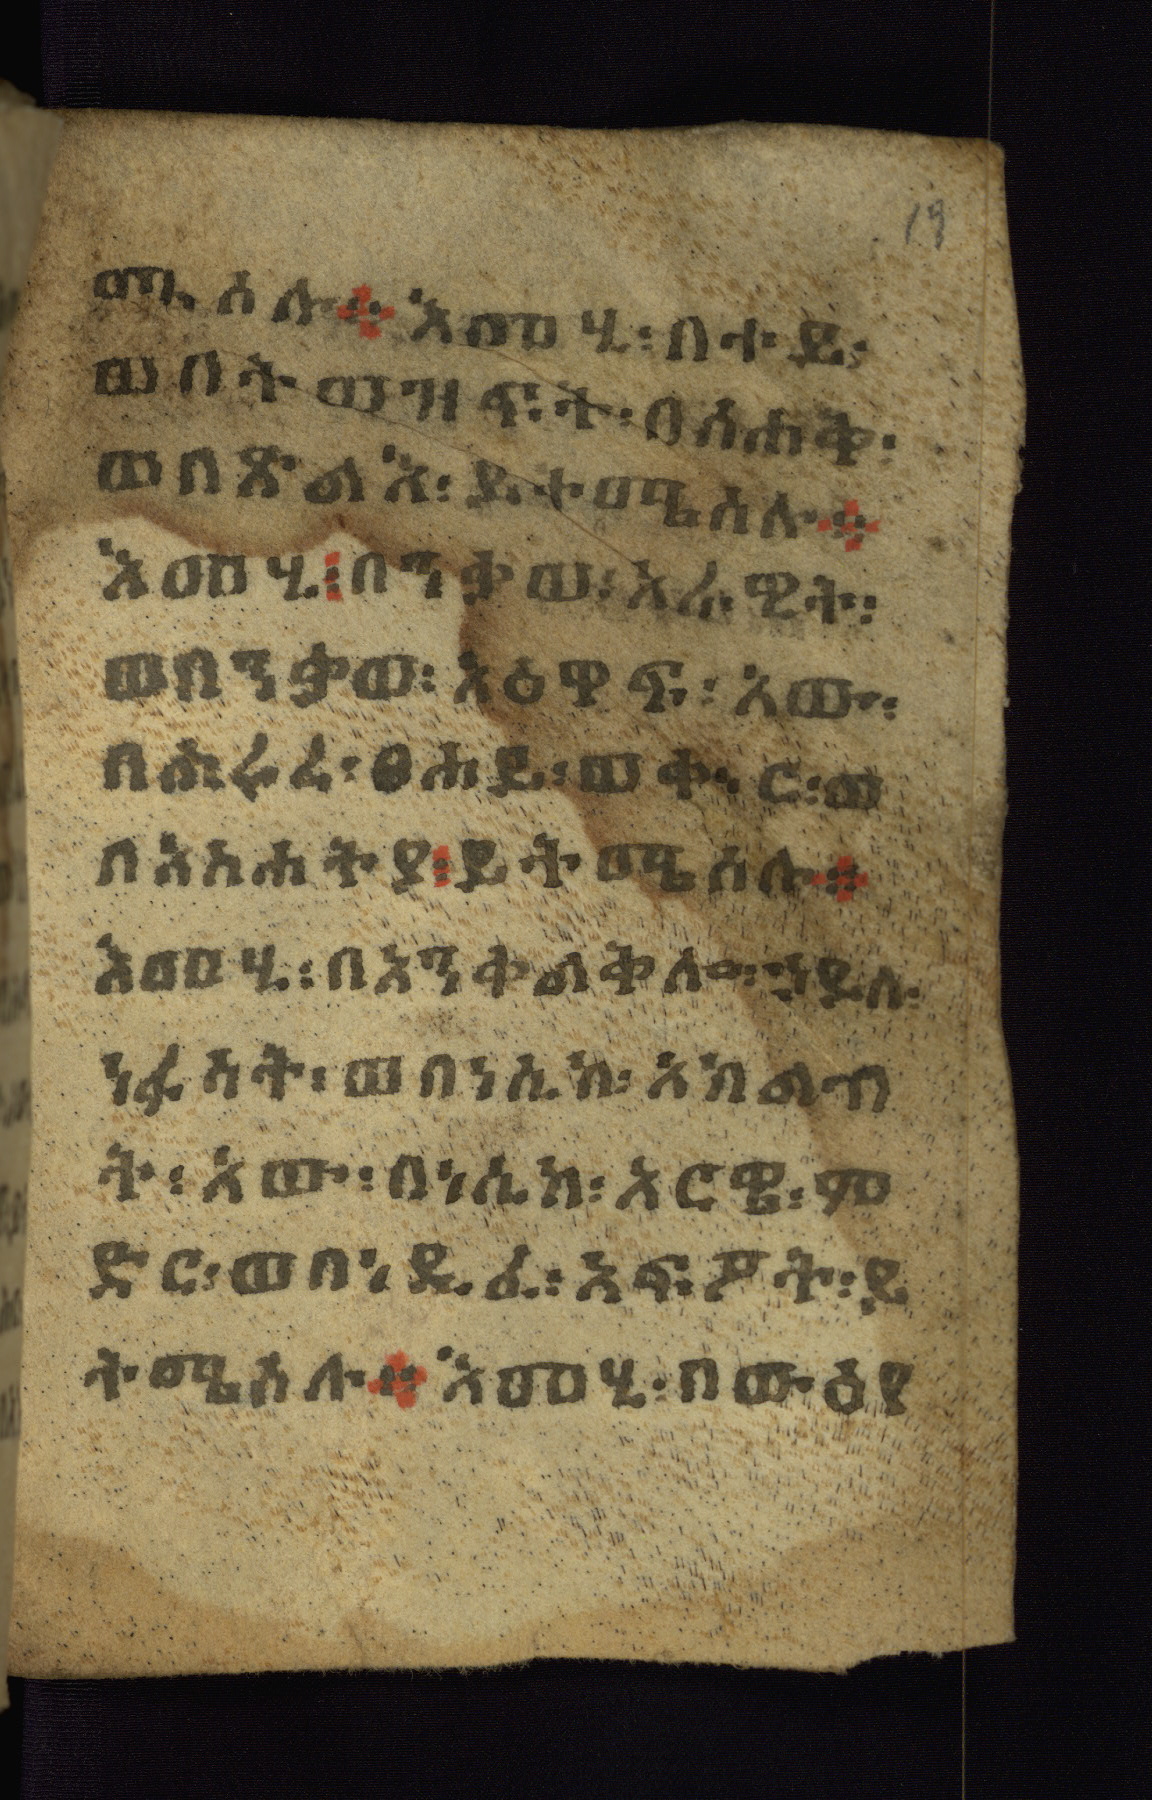 19
ሚ ሰሉ ። እመሂ ፡ በተይ ፡
ወበትወዝፍት ፡ በሰሐቅ ፡
ወበጽልእ ፡ ይተሜሰሉ ።
እመሂ ፡ በንቃወ ፡ አራዊት ፡
ወበንቃወ ፡ አዕዋፍ ፡ አው ፡
በሱራሬ ፡ ፀሐይ ፡ ወቀ፡ ር ፡ ወ
በአስሐትያ ፡ ይትሜሰሉ ።
እመሂ ፡ በአንቀልቅሎ ፡ ነይለ
ነፋሳት ፡ ወበነሲክ ፡ አክልብ
ት ፡ አው ፡ በነሲክ ፡ አርዌ ፡ ም
ድር ፡ ወበነዲፈ ፡ አፍሖት ፡ ይ
ትሜሰሉ ። እመሂ ፡ በውዕየ